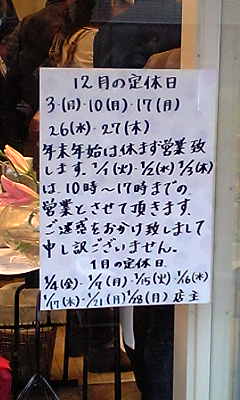 12月の定休日
3・(日)・10(日)・17(日)
26(水)・27(木)
年末年始は休まず営業致
します。1/1(火)・1/2(水)1/3(木)
は、10時〜17時までの
営業とさせて頂きます。
ご迷惑をおかけ致しまして
申し訳ございません。
1月の定休日
1/4(金)・1/7(月)・1/15(火)・1/16(水)
1/17(木)・1/21(月)1/28(月) 店主